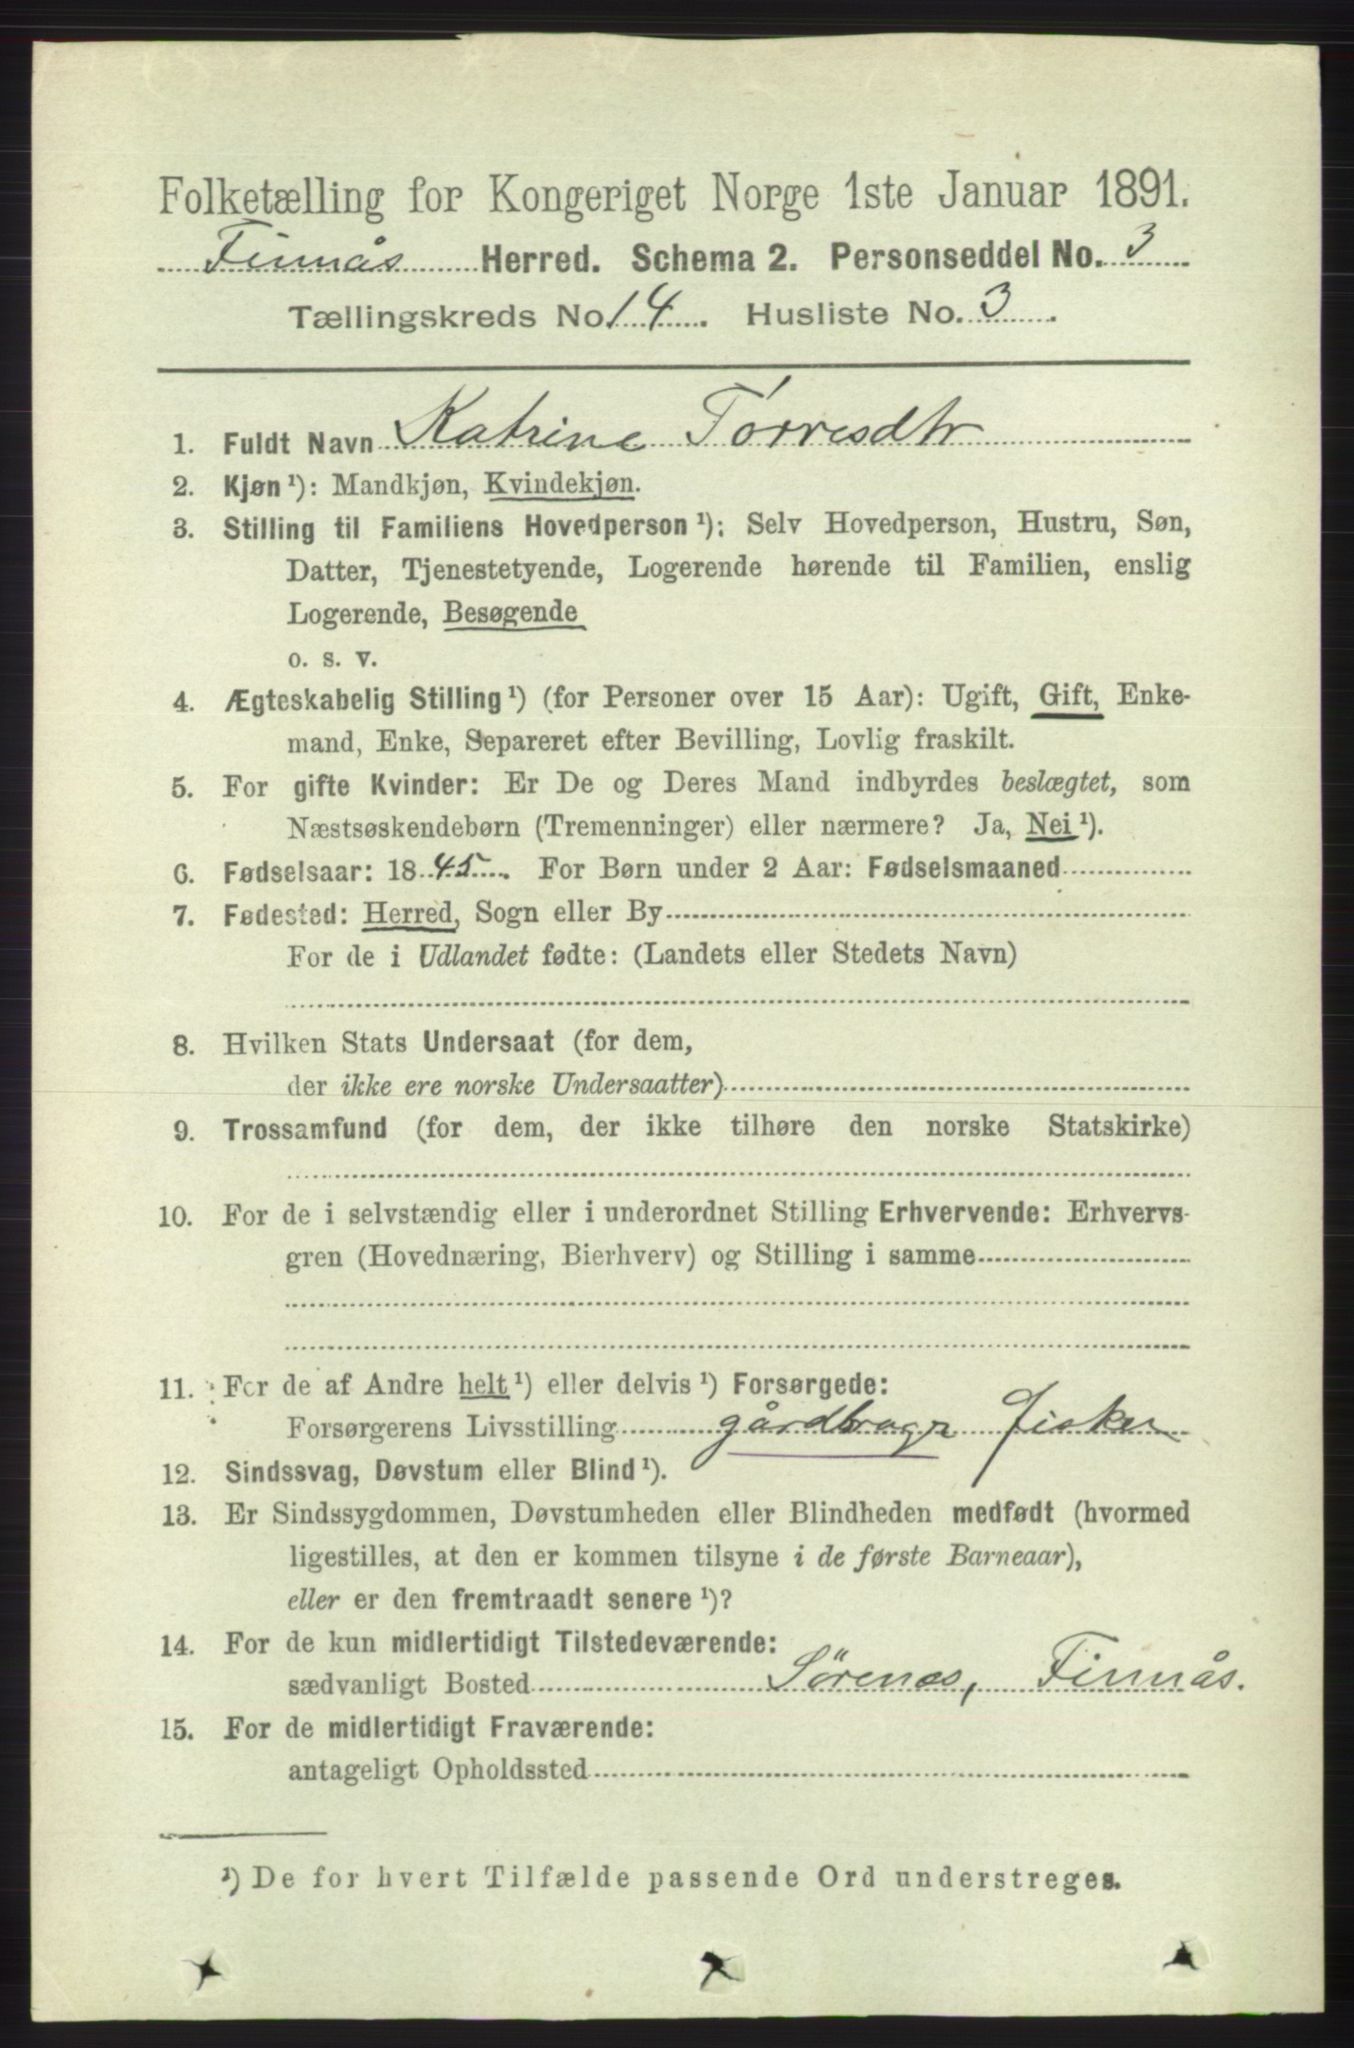 Folketælling for Kongeriget Norge 1ste Januar 1891.
Finnås Herred. Schema 2. Personseddel No. 3
Tællingskreds No. 14. Husliste No. 3.
1. Fuldt Navn Katrine Torresdtr
2. Kjøn ¹): Mandkjøn, Kvindekjøn.
3. Stilling til Familiens Hovedperson ¹): Selv Hovedperson, Hustru, Søn,
Datter, Tjenestetyende, Logerende hørende til Familien, enslig
Logerende, Besøgende
o. s. v.
4. Ægteskabelig Stilling ¹) (for Personer over 15 Aar): Ugift, Gift, Enke-
mand, Enke, Separeret efter Bevilling, Lovlig fraskilt.
5. For gifte Kvinder: Er De og Deres Mand indbyrdes beslægtet, som
Næstsøskendebørn (Tremenninger) eller nærmere? Ja, Nei ¹).
6. Fødselsaar: 1845. For Børn under 2 Aar: Fødselsmaaned
7. Fødested: Herred, Sogn eller By
For de i Udlandet fødte: (Landets eller Stedets Navn)
8. Hvilken Stats Undersaat (for dem,
der ikke ere norske Undersaatter)
9. Trossamfund (for dem, der ikke tilhøre den norske Statskirke)
10. For de i selvstændig eller i underordnet Stilling Erhvervende: Erhvervs-
gren (Hovednæring, Bierhverv) og Stilling i samme
11. For de af Andre helt ¹) eller delvis ¹) Forsørgede:
Forsørgerens Livsstilling gårdbrugr fisker
12. Sindssvag, Døvstum eller Blind ¹).
13. Er Sindssygdommen, Døvstumheden eller Blindheden medfødt (hvormed
ligestilles, at den er kommen tilsyne i de første Barneaar),
eller er den fremtraadt senere ¹)?
14. For de kun midlertidigt Tilstedeværende:
sædvanligt Bosted Sørenes, Finnås.
15. For de midlertidigt Fraværende:
antageligt Opholdssted
¹) De for hvert Tilfælde passende Ord understreges.